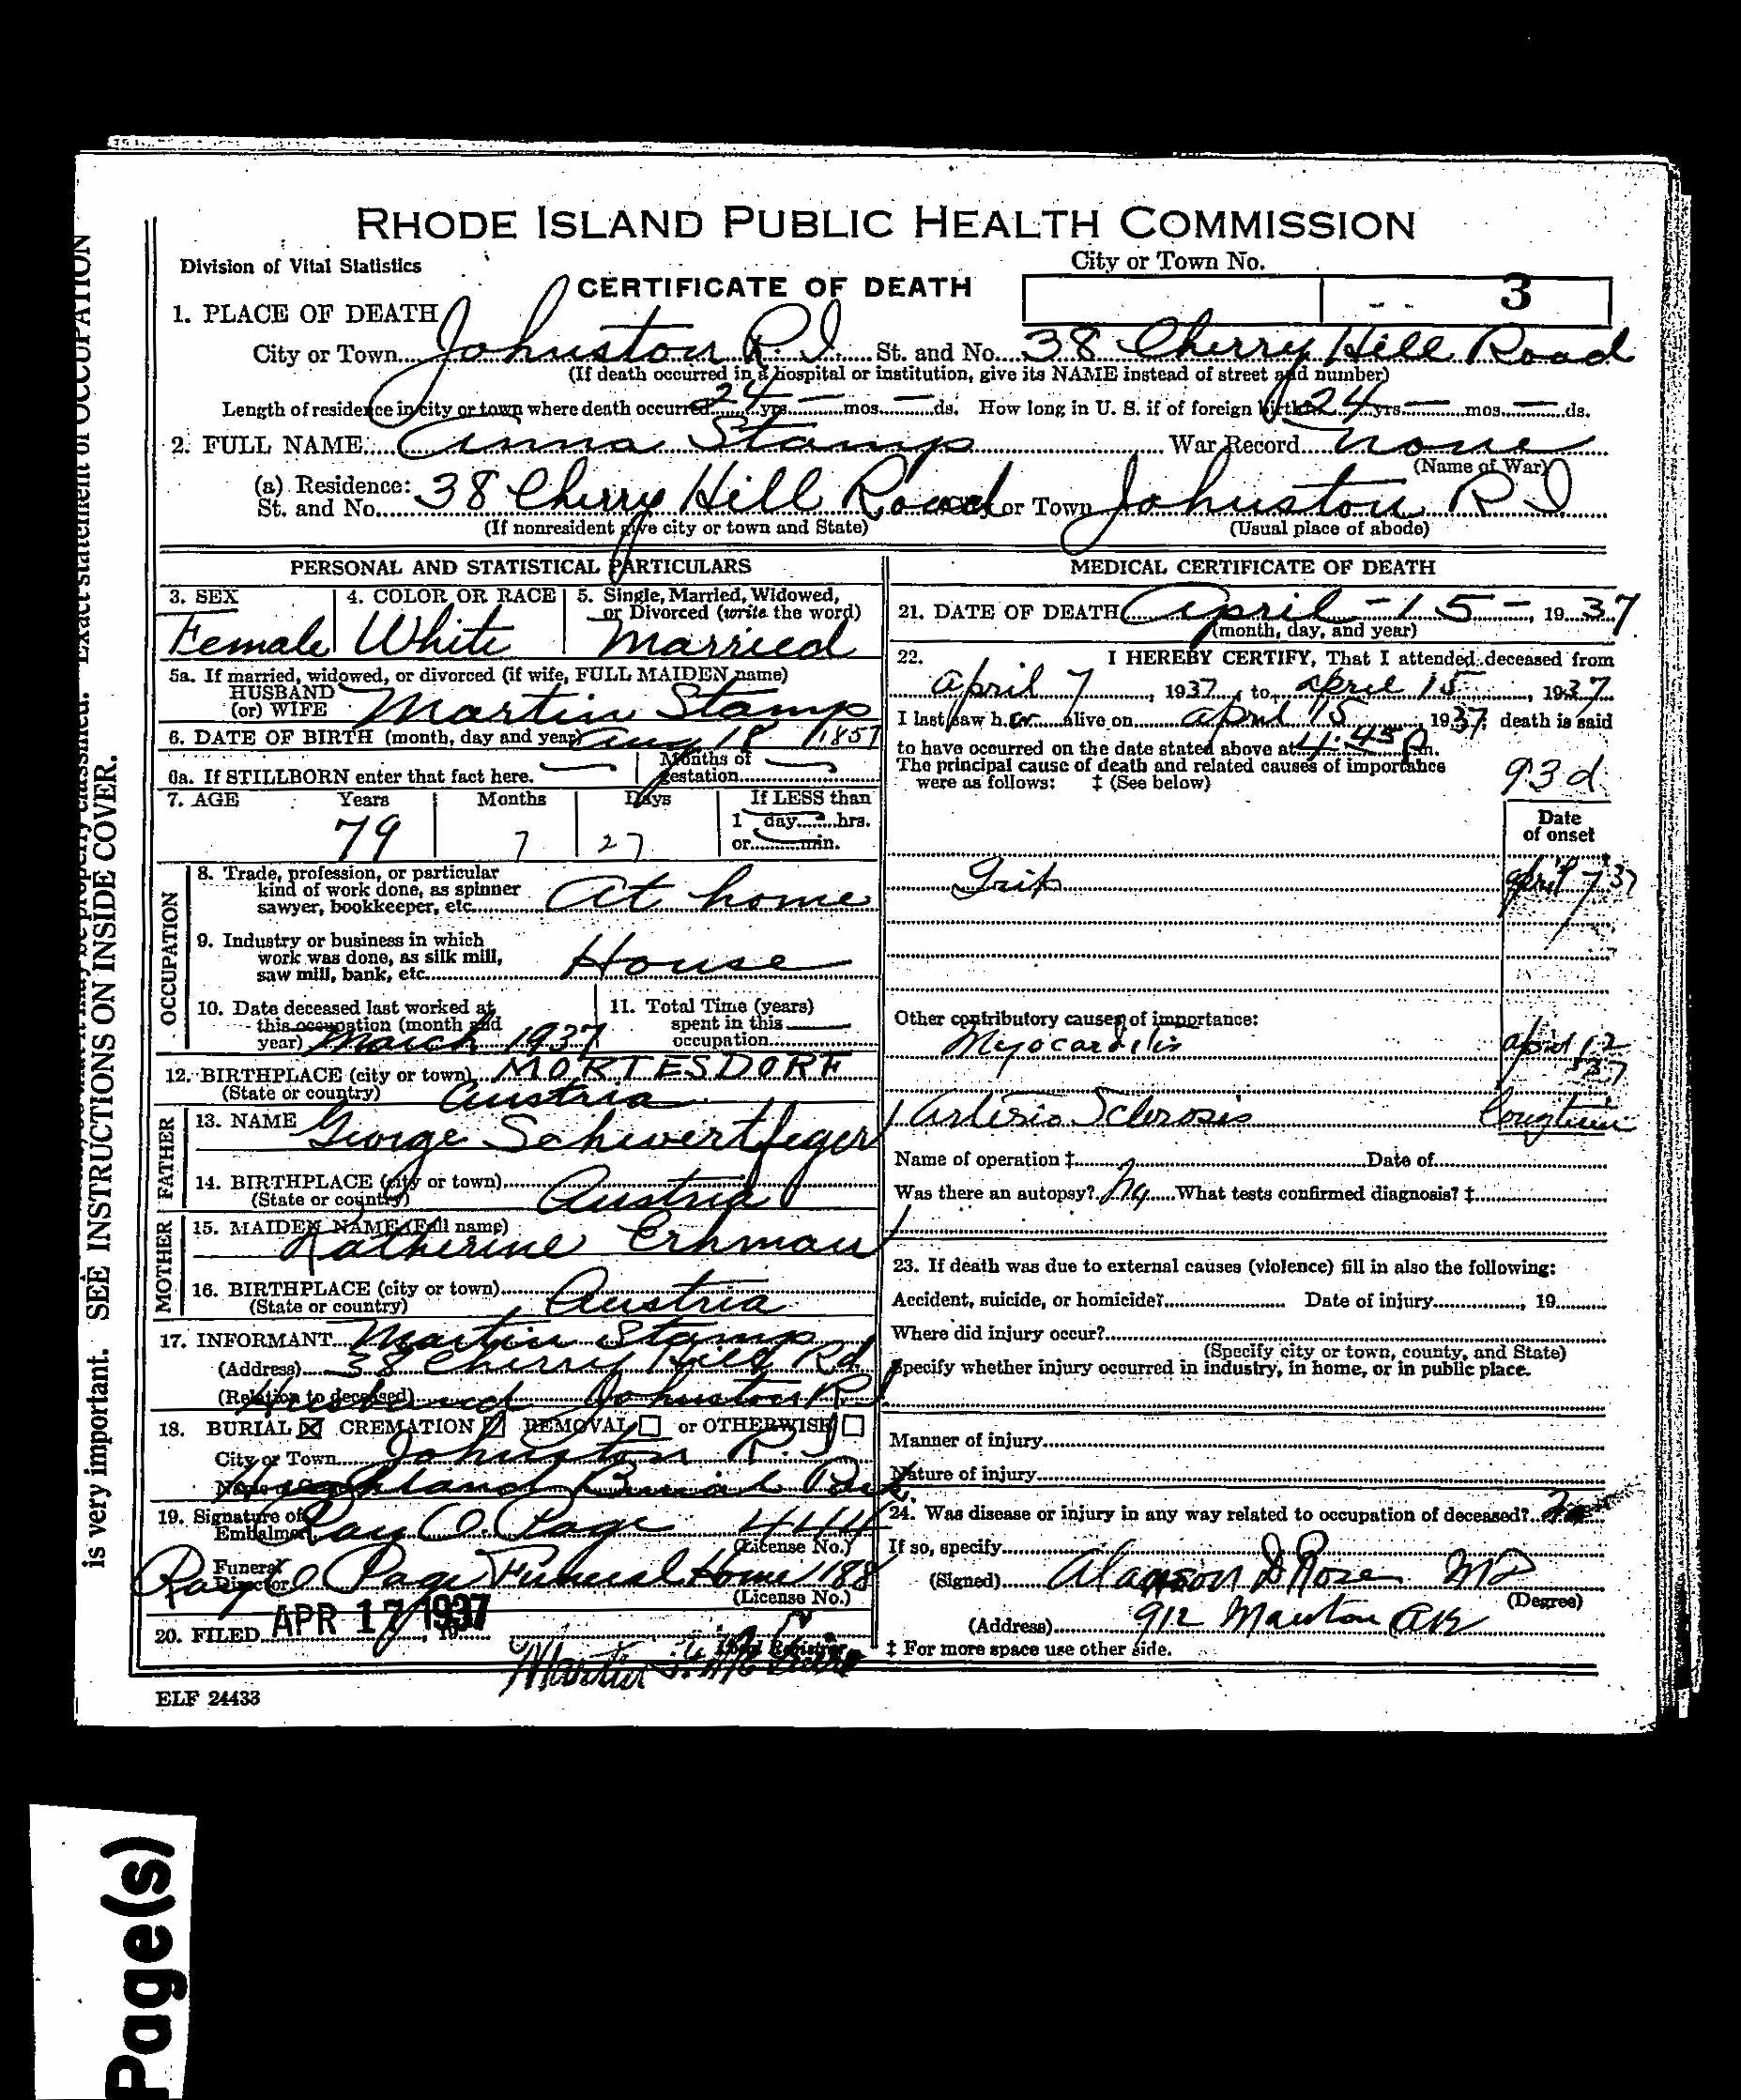 RHODE ISLAND PUBLIC HEALTH COMMISSION
Division of Vital Statistics
City or Town No.
CERTIFICATE OF DEATH
3
1. PLACE OF DEATH
City or Town Johnston R.I. St. and No. 38 Cherry Hill Road
(If death occurred in a hospital or institution, give its NAME instead of street and number)
Length of residence in city or town where death occurred 24 yrs. — mos. — ds. How long in U. S. if of foreign birth 24 yrs. — mos. — ds.
2. FULL NAME Anna Stamp War Record none
(Name of War)
(a) Residence: St. and No. 38 Cherry Hill Road or Town Johnston R I
(If nonresident give city or town and State) (Usual place of abode)
PERSONAL AND STATISTICAL PARTICULARS
3. SEX 4. COLOR OR RACE 5. Single, Married, Widowed, or Divorced (write the word)
Female White Married
5a. If married, widowed, or divorced (if wife, FULL MAIDEN name)
HUSBAND
(or) WIFE Martin Stamp
6. DATE OF BIRTH (month, day and year) Aug 18 1857
6a. If STILLBORN enter that fact here. — Months of gestation —
7. AGE Years Months Days If LESS than
1 day hrs.
or min.
79 7 27
OCCUPATION
8. Trade, profession, or particular
kind of work done, as spinner
sawyer, bookkeeper, etc. At home
9. Industry or business in which
work was done, as silk mill,
saw mill, bank, etc. House
10. Date deceased last worked at
this occupation (month and
year) March 1937
11. Total Time (years)
spent in this
occupation
12. BIRTHPLACE (city or town) MORTESDORF
(State or country) Austria
FATHER
13. NAME George Schwertfeger
14. BIRTHPLACE (city or town)
(State or country) Austria
MOTHER
15. MAIDEN NAME (Full name)
Katherine Erhman
16. BIRTHPLACE (city or town)
(State or country) Austria
17. INFORMANT Martin Stamp
(Address) 38 Cherry Hill Rd
(Relation to deceased) Husband Johnston R I
18. BURIAL ☒ CREMATION REMOVAL or OTHERWISE
City or Town Johnston R.I
Highland Burial Park
19. Signature of
Embalmer Ray O. Page 444
(License No.)
Funeral
Director Ray O Page Funeral Home 188
(License No.)
20. FILED APR 17 1937
Local Registrar
ELF 24433
MEDICAL CERTIFICATE OF DEATH
21. DATE OF DEATH April - 15 - , 1937
(month, day, and year)
22. I HEREBY CERTIFY, That I attended deceased from
April 7, 1937, to April 15, 1937
I last saw her alive on April 15, 1937; death is said
to have occurred on the date stated above at 4:45 P.m.
The principal cause of death and related causes of importance
were as follows: ‡ (See below)
93d
Date
of onset
Grip April 7 37
Other contributory causes of importance:
Myocarditis April 12 37
Arterio Sclerosis
Name of operation ‡ Date of
Was there an autopsy? No What tests confirmed diagnosis? ‡
23. If death was due to external causes (violence) fill in also the following:
Accident, suicide, or homicide? Date of injury , 19
Where did injury occur?
(Specify city or town, county, and State)
Specify whether injury occurred in industry, in home, or in public place.
Manner of injury
Nature of injury
24. Was disease or injury in any way related to occupation of deceased? No
If so, specify
(Signed) Alanson D Rose MD
(Degree)
(Address) 912 Manton Ave
‡ For more space use other side.
is very important. SEE INSTRUCTIONS ON INSIDE COVER.
Exact statement of OCCUPATION
Page(s)